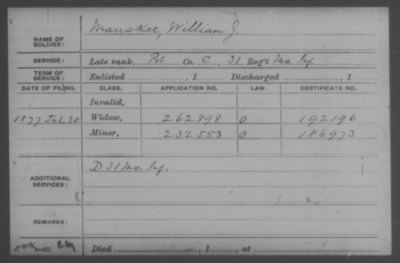 NAME OF SOLDIER: Mansker, William J.
SERVICE: Late rank, Pvt Co. C, 31 Reg't Mo. Inf.
TERM OF SERVICE: Enlisted , 1 Discharged , 1
DATE OF FILING. CLASS. APPLICATION NO. LAW. CERTIFICATE NO.
Invalid,
1877 Jul 30 Widow, 262898 0 192196
Minor, 232553 0 186973
ADDITIONAL SERVICES: D 31 Mo. Inf.
REMARKS:
Died , 1 , at